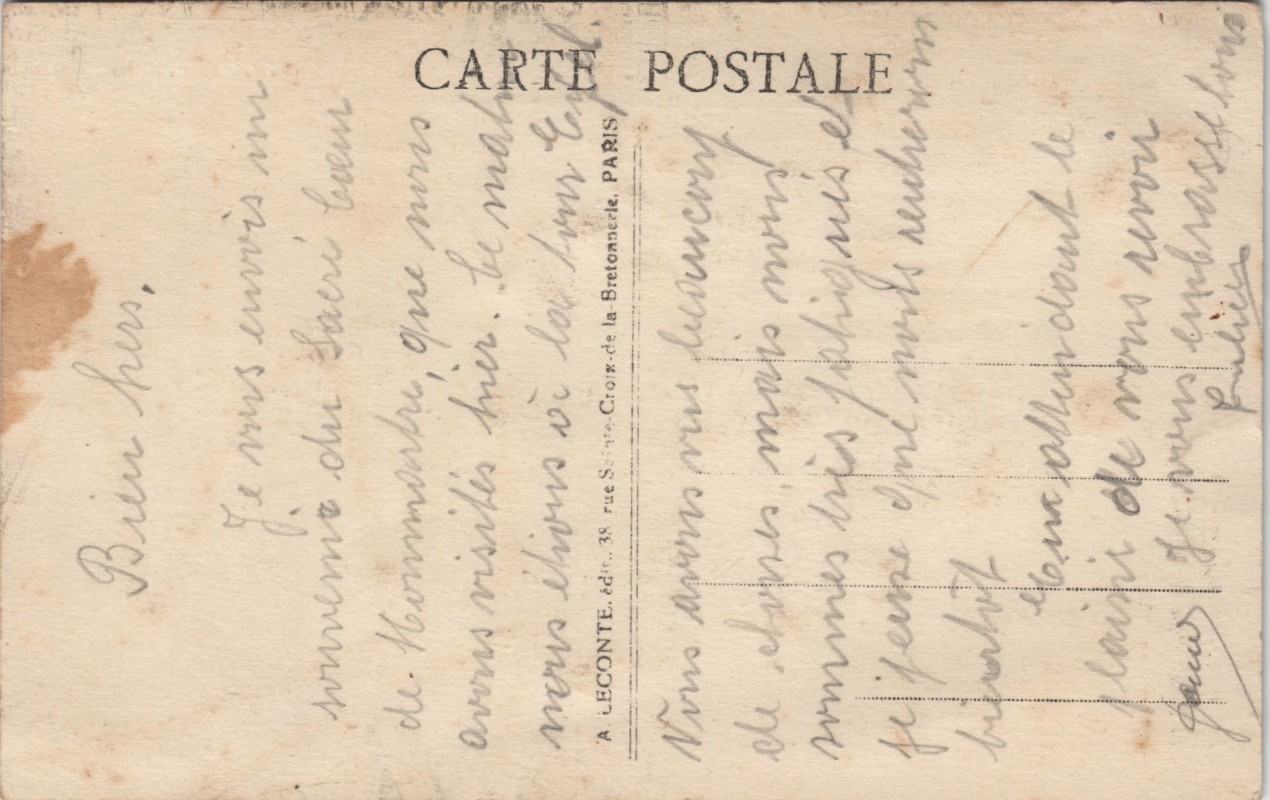 CARTE POSTALE
A LECONTE, édit., 38 rue Sainte-Croix-de la-Bretonnerie, PARIS
Bien chers,
Je vous envois un
souvenir du Sacré Cœur
de Monmartre, que nous
avons visités hier. Ce matin
nous étions à la tour Eiffel.
Nous avons vus beaucoup
de choses, mais nous
sommes très fatigués et
je pense que nous rentrerons
bientôt
En attendant le
plaisir de vous revoir
Je vous embrasse tous